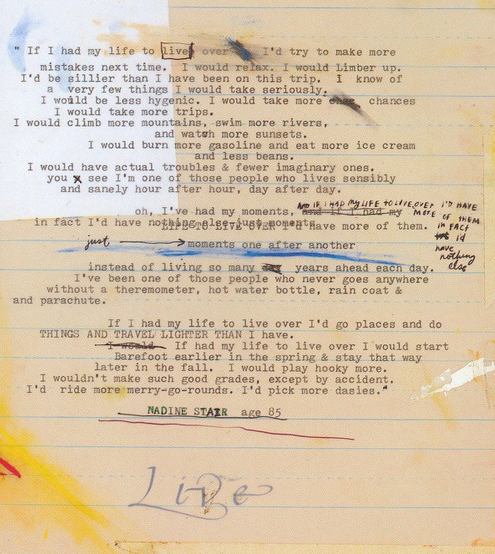 " If I had my life to live over I'd try to make more
mistakes next time. I would relax. I would Limber up.
I'd be sillier than I have been on this trip. I know of
a very few things I would take seriously.
I would be less hygenic. I would take more chances
I would take more trips.
I would climb more mountains, swim more rivers,
and watch more sunsets.
I would burn more gasoline and eat more ice cream
and less beans.
I would have actual troubles & fewer imaginary ones.
you x see I'm one of those people who lives sensibly
and sanely hour after hour, day after day.
oh, I've had my moments, and if I had my
AND IF I HAD MY LIFE TO LIVE OVER I'D HAVE
MORE OF THEM.
IN FACT
I'd
have
nothing
else
LIFE TO LIVE OVER I'D HAVE more of them.
in fact I'd have nothing else just moments
just moments one after another
instead of living so many day years ahead each day.
I've been one of those people who never goes anywhere
without a theremometer, hot water bottle, rain coat &
and parachute.
If I had my life to live over I'd go places and do
THINGS AND TRAVEL LIGHTER THAN I have.
I would If I had my life to live over I would start
Barefoot earlier in the spring & stay that way
later in the fall. I would play hooky more.
I wouldn't make such good grades, except by accident.
I'd ride more merry-go-rounds. I'd pick more dasies."
NADINE STAIR age 85
LiFe